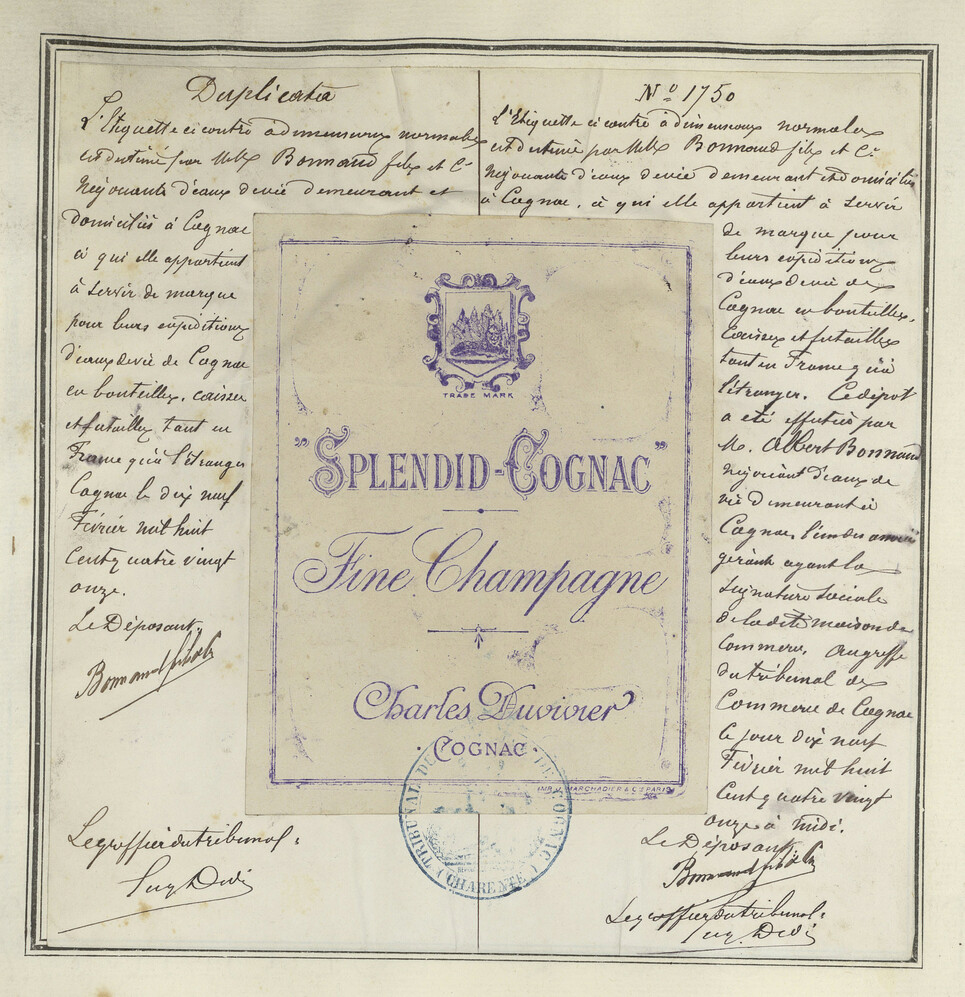 Duplicata
L'Etiquette ci contre à dimensions normales
est destinée par MM Bonnaud fils et Cie
Négociants d'eaux de vie demeurant et
domiciliés à Cognac
à qui elle appartient
à servir de marque
pour leurs expéditions
d'eaux de vie de Cognac
en bouteilles, caisses
et futailles tant en
France qu'à l'étranger
Cognac le dix neuf
Février mil huit
Cent quatre vingt
onze.
Le Déposant.
Bonnaud fils & Cie
Le greffier du tribunal.
No 1750
L'Etiquette ci contre à dimensions normales
est destinée par MM Bonnaud fils et Cie
Négociants d'eaux de vie demeurant et domiciliés
à Cognac, à qui elle appartient à servir
de marque pour
leurs expéditions
d'eaux de vie de
Cognac en bouteilles,
Caisses et futailles
tant en France qu'à
l'étranger. Ce dépot
a été effectué par
M. Albert Bonnaud
négociant d'eaux de
vie demeurant à
Cognac, l'un des associés
gérants ayant la
signature sociale
de la dite maison de
Commerce, au greffe
du tribunal de
Commerce de Cognac
le jour dix neuf
Février mil huit
Cent quatre vingt
onze à midi.
Le Déposant
Bonnaud fils & Cie
Le greffier du tribunal.
TRADE MARK
"SPLENDID-COGNAC"
Fine Champagne
Charles Duvivier
COGNAC
IMP. MARCHADIER & Cie PARIS
TRIBUNAL DE COGNAC
(CHARENTE)